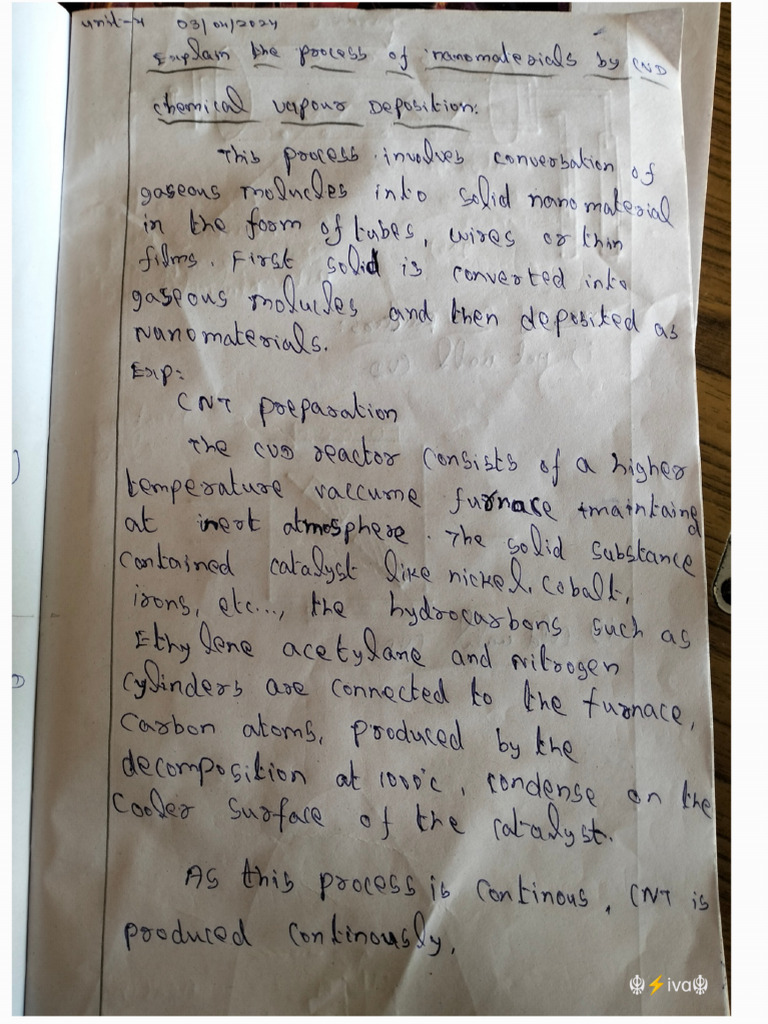 unit-4 03/04/2024
Explain the process of nanomaterials by CVD
chemical vapour Deposition.
This process involves conversation of
gaseous molucles into solid nano material
in the form of tubes, wires or thin
films. First solid is converted into
gaseous molucles and then deposited as
Nanomaterials.
Exp:
CNT preparation
The CVD reactor consists of a higher
temperature vaccume furnace maintained
at inert atmosphere. The solid substance
contained catalyst like nickel, cobalt,
irons, etc..., the hydrocarbons such as
Ethylene acetylane and nitrogen
cylinders are connected to the furnace,
Carbon atoms, produced by the
decomposition at 1000°c, condense on the
Cooler surface of the catalyst.
As this process is continous, CNT is
produced continously.
☬⚡iva☬